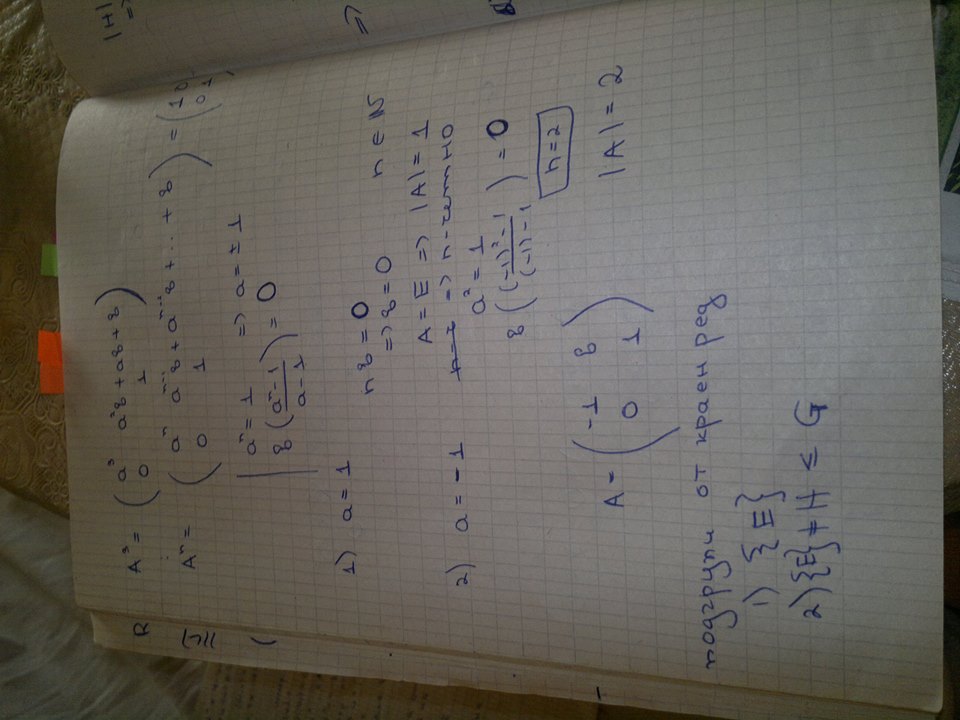 A³ = ( a³ a²b+ab+b )
( 0 1 )
Aⁿ = ( aⁿ aⁿ⁻¹b + aⁿ⁻²b + .. + b ) = ( 1 0 )
( 0 1 ) ( 0 1 )
| aⁿ = 1 => a = ±1
| b ( aⁿ-1 / a-1 ) = 0
1) a = 1 nb = 0 n ∈ N
=> b = 0
A = E => |A| = 1
2) a = -1 => n - четно
a² = 1
b ( (-1)²-1 / (-1)-1 ) = 0
n=2
A = ( -1 b )
( 0 1 ) |A| = 2
подгрупи от краен ред
1) {E}
2) {E} ≠ H ≤ G
|H|
=>
=>
R
(